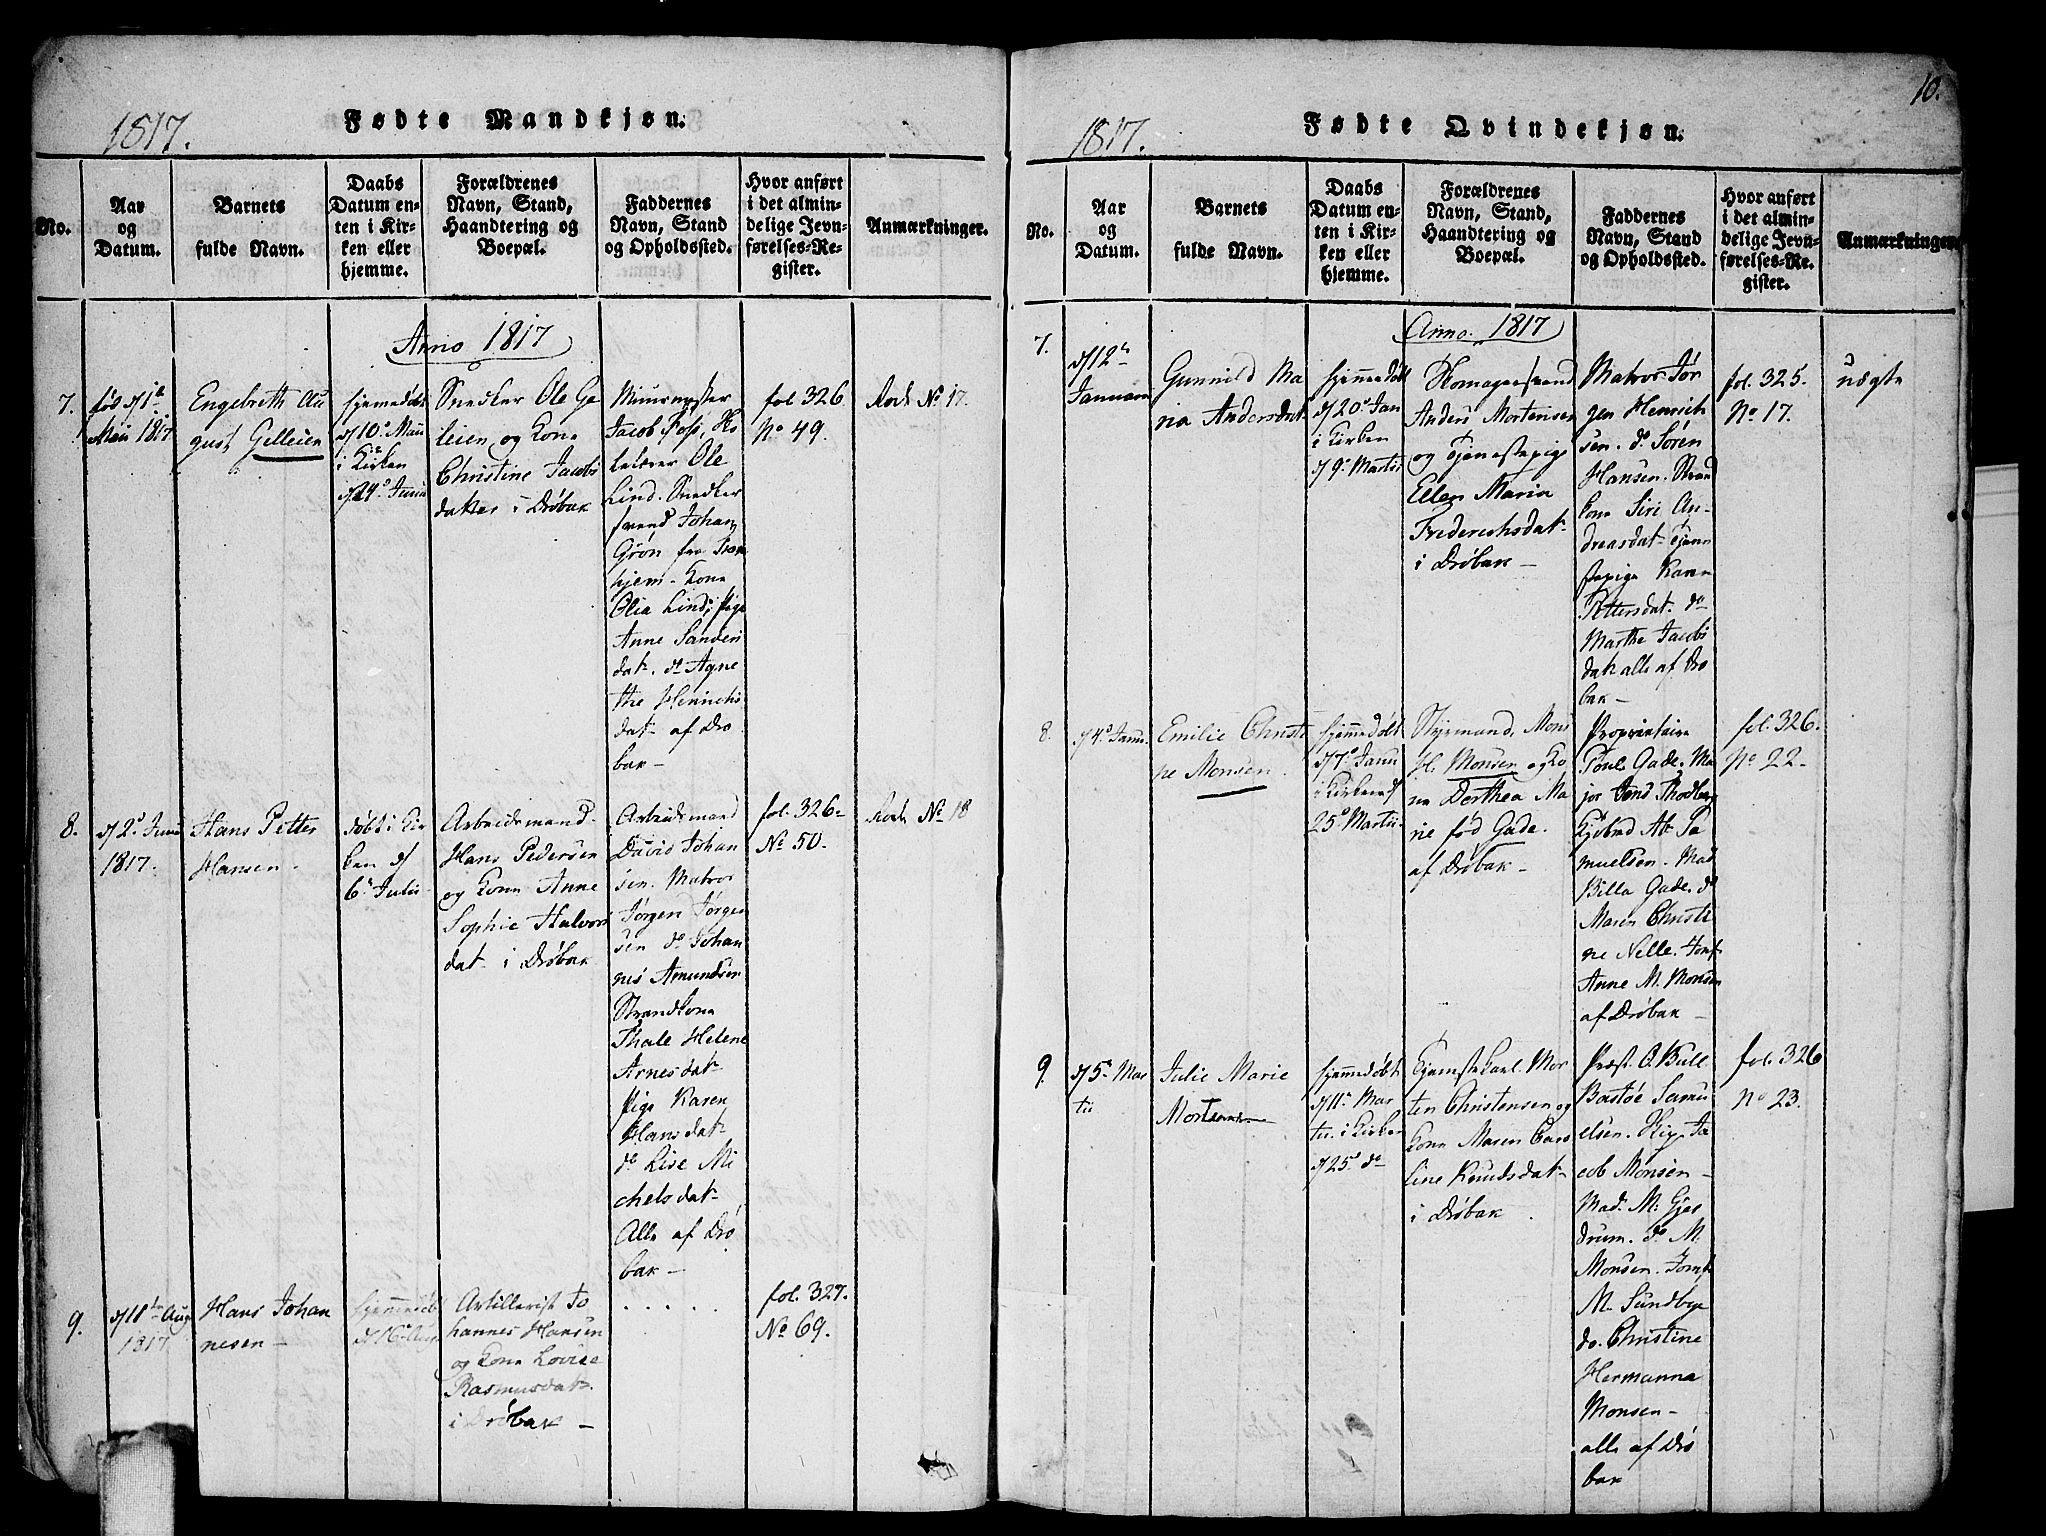 1817.
Fødte Mandkjøn.
No.
Aar
og
Datum.
Barnets
fulde Navn.
Daabs
Datum en-
ten i Kir-
ken eller
hjemme.
Forældrenes
Navn, Stand,
Haandtering og
Boepæl.
Faddernes
Navn, Stand
og Opholdssted.
Hvor anført
i det almin-
delige Jevn-
førelses-Re-
gister.
Anmærkninger.
Anno 1817
7.
fød d/1e
Maii 1817
Engebreth Au
gust Gelleien
hjemedøbt
d/10e Maii
i Kirken
d/24e Junii
Snedker Ole Ge
leien, og Kone
Christine Jacobs
datter i Drøbak
Muurmester
Jacob Foss, Ho
Ole
Lind. Snedker
svend Johan
Grøn fra
hjem. Kone
Olia Lind, Pige
Anne Sanders
dat. do Agne
the Hinrichs
dat. af Drø
bak—
fol 326
No 49.
Rode No 17.
8.
d/2e Junii
1817.
Hans Petter
Hansen.
døbt i Kir
ken d/
6e Julii
Arbeidsmand
Hans Pedersen
og Kone Anne
Sophie Halvors
dat. i Drøbak
Arbeidsmand
David Johan
sen. Matros
Jørgen Jørgen
sen do Johan
nes Amundsen
Strandkone
Thale Helene
Arnesdat.
Pige Karen
Hansdat.
do Lise Mi
chelsdat.
Alle af Drø
bak—
fol. 326
No 50.
Rode No 18
9.
d/11te Aug
1817
Hans Johan
nesen—
hjemmedøbt
d/16e Aug
Artillerist Jo
hannes Hansen
og Kone Lovise
Rasmusdat.
i Drøbak—
. . . . .
fol. 327.
No 69.
10.
1817.
Fødte Qvindekjøn.
No.
Aar
og
Datum.
Barnets
fulde Navn.
Daabs
Datum en-
ten i Kir-
ken eller
hjemme.
Forældrenes
Navn, Stand,
Haandtering og
Boepæl.
Faddernes
Navn, Stand
og Opholdssted.
Hvor anført
i det almin-
delige Jevn-
førelses-Re-
gister.
Anmærkninger
Anno. 1817
7.
d/12te
Januarii
Gunnild Ma
ria Andersdat.
hjemmedøbt
d/20e Jan
i Kirken
d/9e Martii
Skomagersvend
Anders Mortensen
og Tjenestepige
Ellen Maria
Frederichsdat.
i Drøbak—
Matros Jør
gen Henrich
sen. do Søren
Hansen. Stran
kone Siri An-
dreasdat. Tjene
stepige Karen
Pettersdat. do
Marthe Jacobs
dat. alle af Drø
bak—
fol. 325.
No 17.
uægte
8.
d/4e Janu.
Emilie Christi
ne Monsen.
hjemmedøbt
d/7e Janu
i Kirken d/
25e Martii.
Styrmand, Mons
H. Monsen og Ko
ne Dorthea Ma
rie fød Gade.
af Drøbak—
Proprietaire
Pouls Gade. Ma
jor Jens Thodberg
Kjøbmd Ab. Sa
muelsen. Mad.
Billa Gade. do
Maren Christi
ne Nelle. Jomf.
Anne M. Monsen
af Drøbak—
fol. 326.
No 22
9.
d/5e Mar
tii
Julie Marie
Mortens
hjemmedøbt
d/11te Mar
tii. i Kirken
d/25e do
Tjenestekarl. Mor
ten Christensen og
Kone Maren Caro
line Knudsdat.
i Drøbak
Præst. O. Bull
Bastøe Samu
elsen. Ja
cob Monsen—
Mad. M: Gjer
drum. do M.
Monsen. Jomf.
M. Sundbye
do. Christine
Hermanna
Monsen—
alle af Drø
bak
fol. 326
No 23.